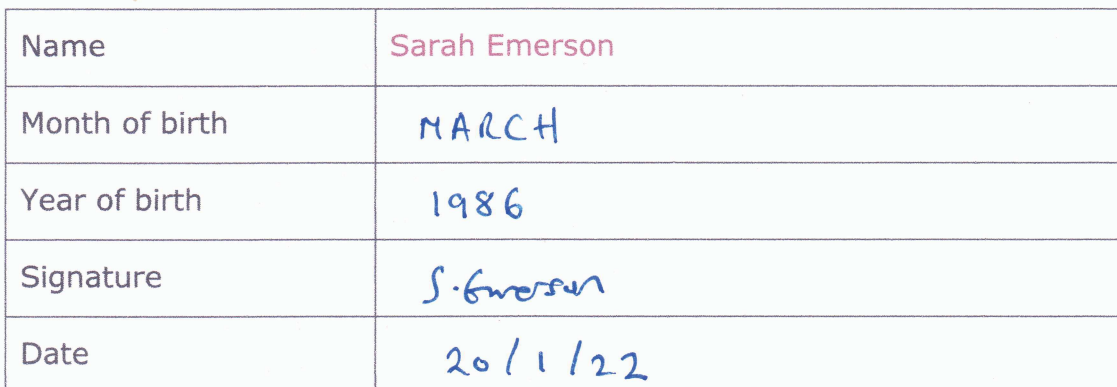 Name Sarah Emerson
Month of birth MARCH
Year of birth 1986
Signature S. Emerson
Date 20/1/22